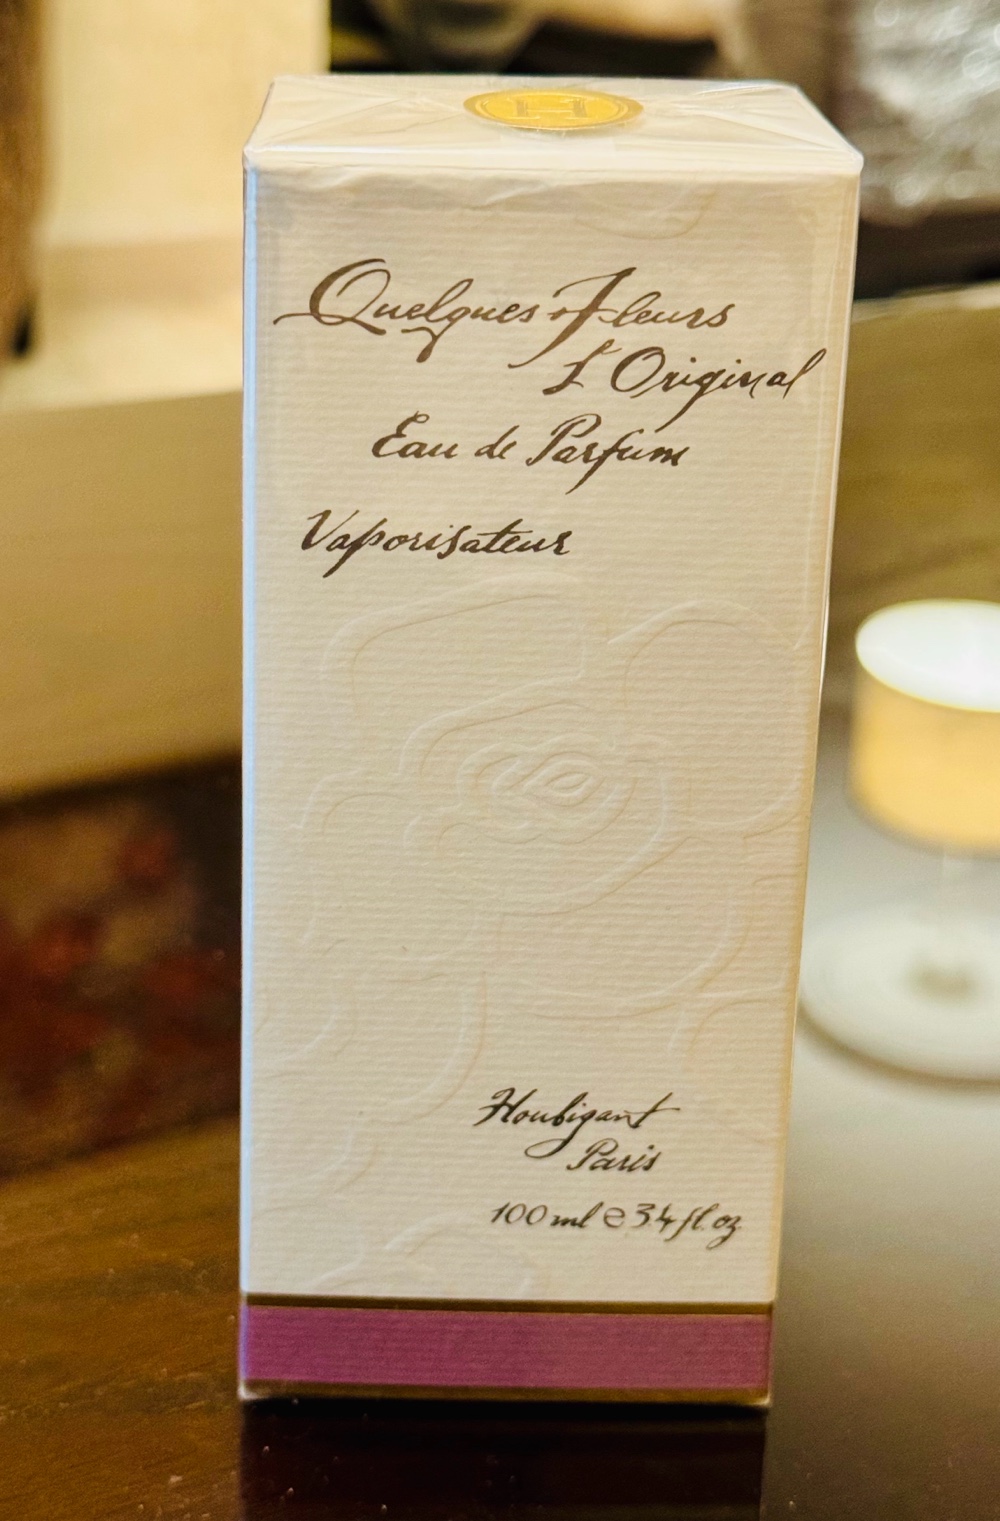 H
Quelques Fleurs
L'Original
Eau de Parfum
Vaporisateur
Houbigant
Paris
100 ml e 3.4 fl. oz